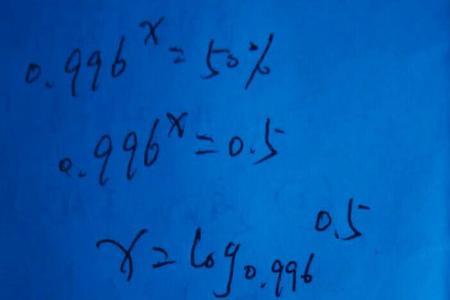 0.996^x = 50%
0.996^x = 0.5
x = log_0.996 0.5